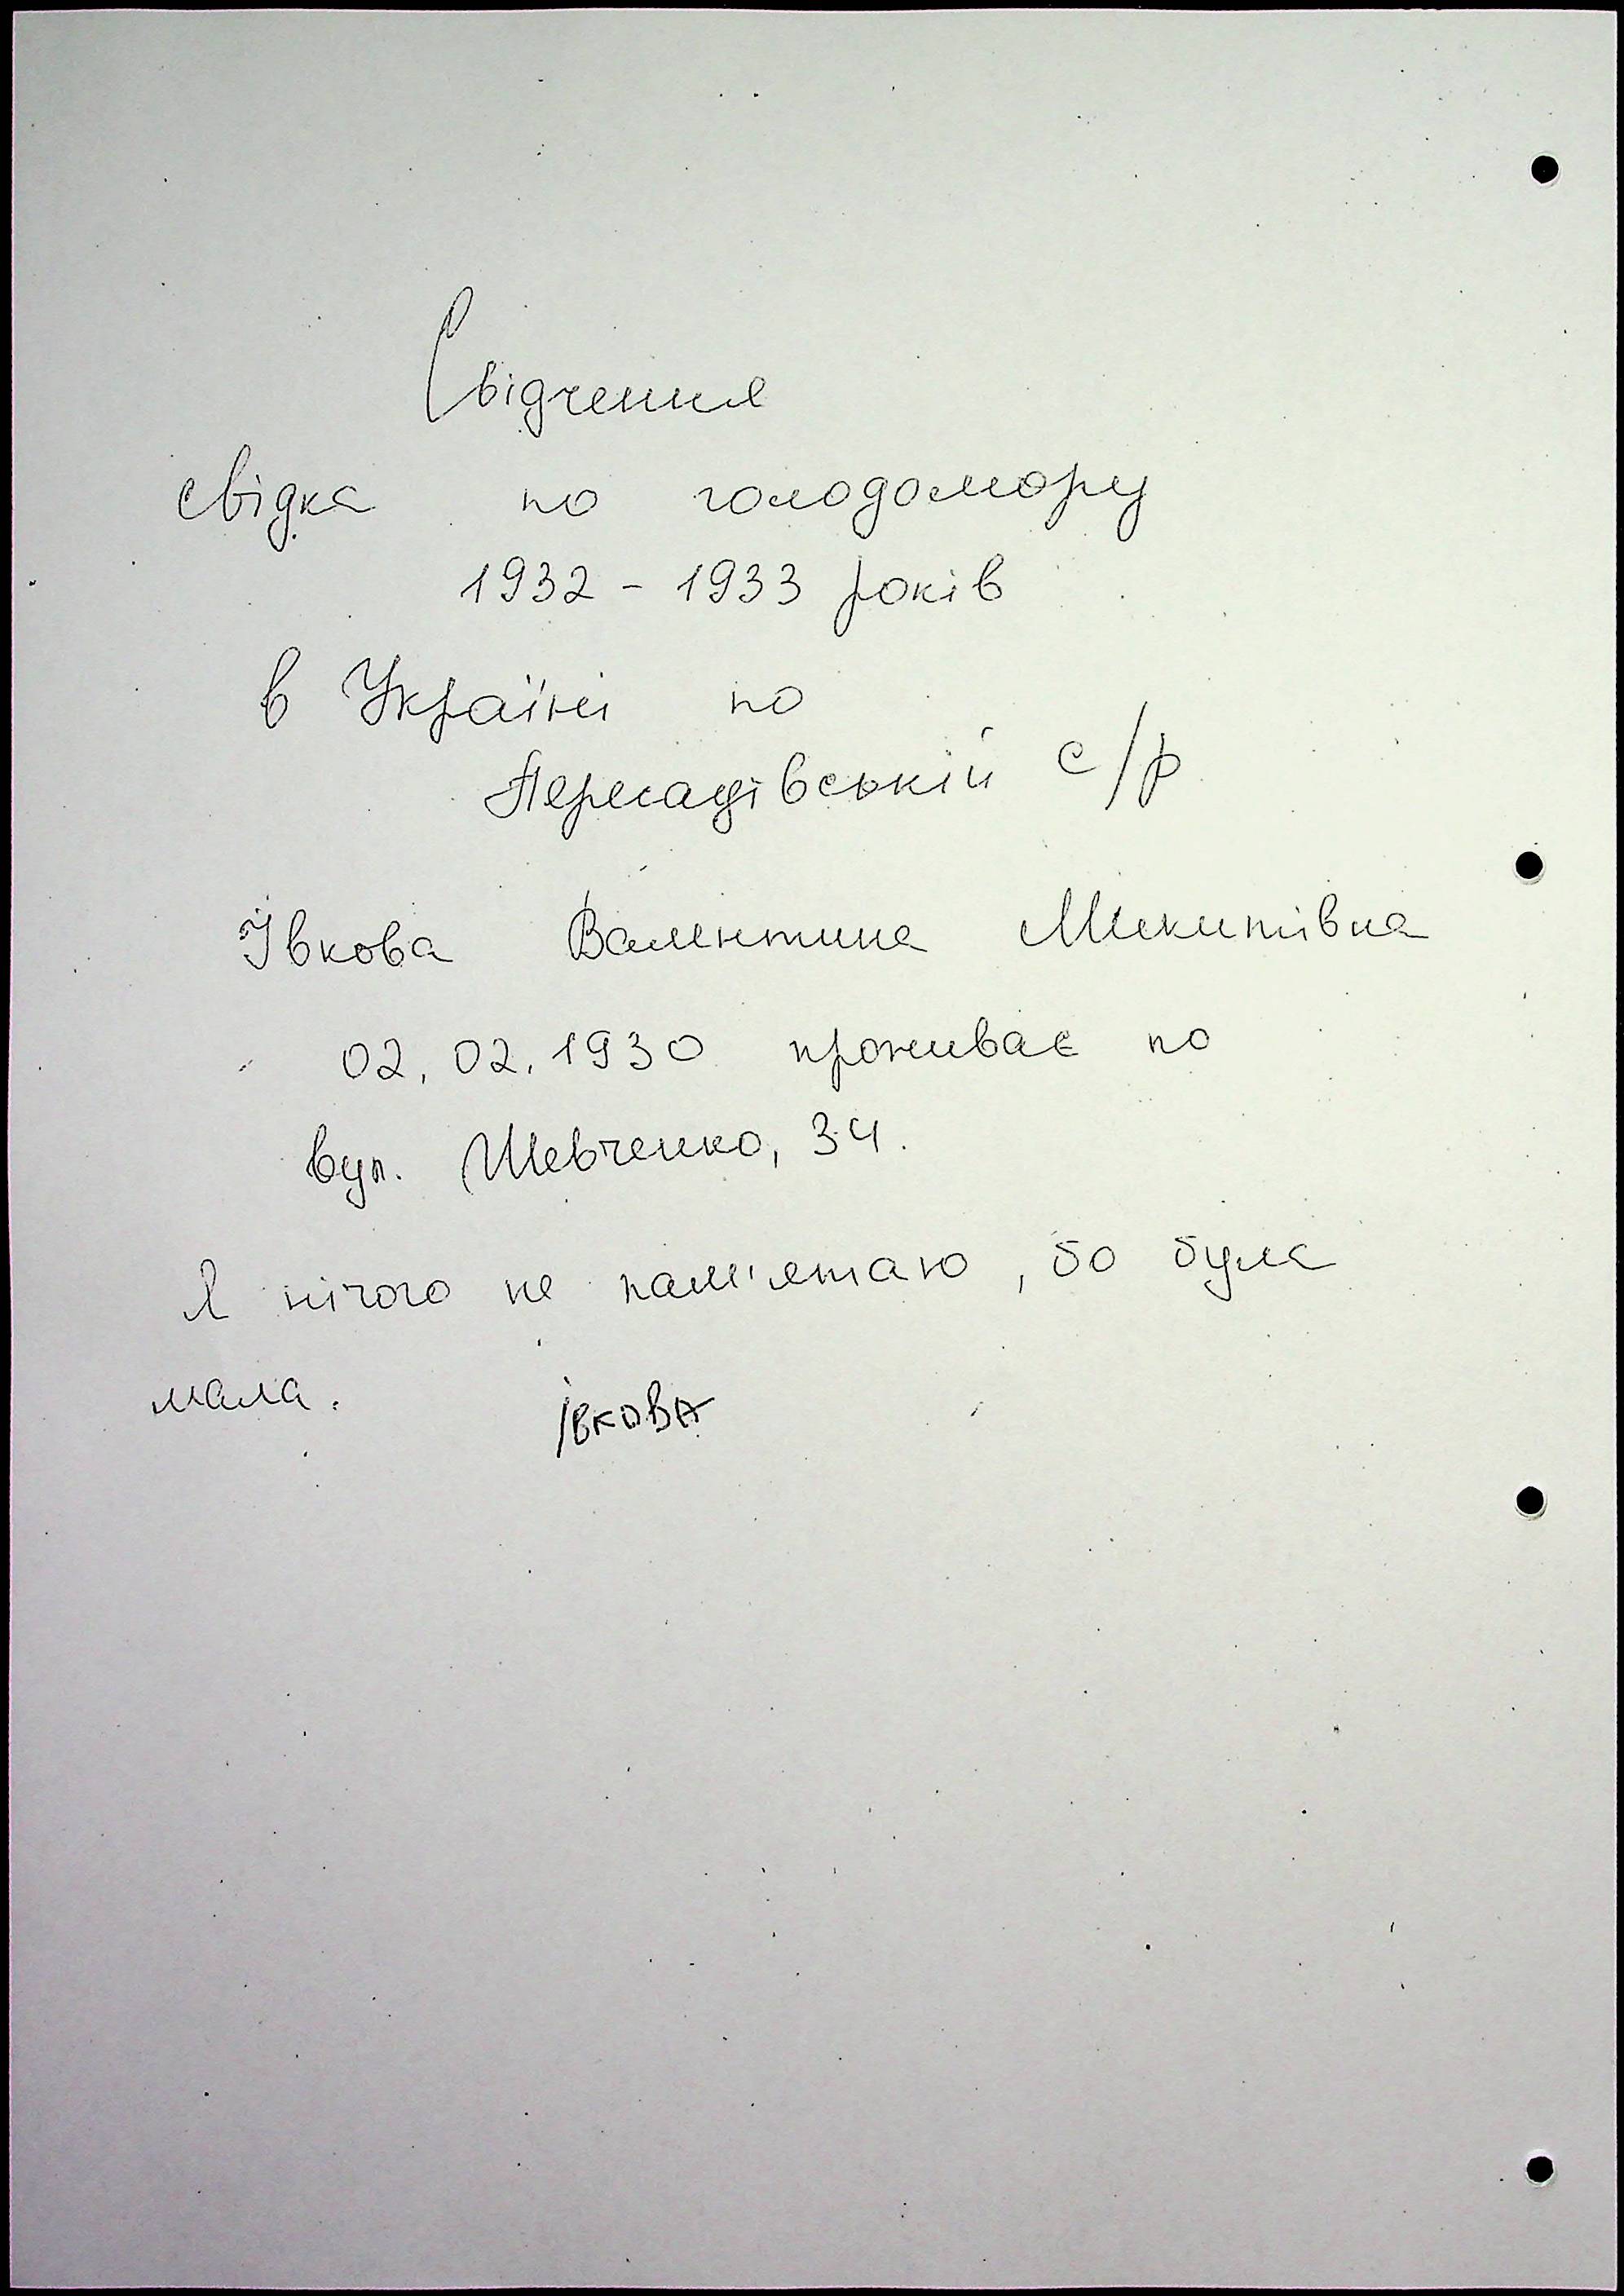 Свідчення
свідка по голодомору
1932 - 1933 років
в Україні по
Пересадівській с/р
Івкова Валентина Микитівна
02.02.1930 проживає по
вул. Шевченко, 34.
Я нічого не пам'ятаю, бо була
мала. Івкова